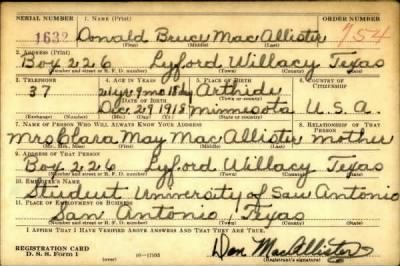 SERIAL NUMBER 1. NAME (Print) ORDER NUMBER
1632 Donald Bruce MacAllister 954
(First) (Middle) (Last)
2. ADDRESS (Print)
Box 226 Lyford Willacy Texas
(Number and street or R. F. D. number) (Town) (County) (State)
3. TELEPHONE 4. AGE IN YEARS 5. PLACE OF BIRTH 6. COUNTRY OF CITIZENSHIP
37 21 yr 9 mo 18 dy
DATE OF BIRTH (Town or county)
Dec 29 1918 Minnesota U.S.A.
(Exchange) (Number) (Mo.) (Day) (Yr.) (State or country)
7. NAME OF PERSON WHO WILL ALWAYS KNOW YOUR ADDRESS 8. RELATIONSHIP OF THAT PERSON
Mrs Clara May MacAllister mother
(Mr., Mrs., Miss) (First) (Middle) (Last)
9. ADDRESS OF THAT PERSON
Box 226 Lyford Willacy Texas
(Number and street or R. F. D. number) (Town) (County) (State)
10. EMPLOYER'S NAME
Student University of San Antonio
11. PLACE OF EMPLOYMENT OR BUSINESS
San Antonio, Texas
(Number and street or R. F. D. number) (Town) (County) (State)
I AFFIRM THAT I HAVE VERIFIED ABOVE ANSWERS AND THAT THEY ARE TRUE.
REGISTRATION CARD
D. S. S. Form 1
Don MacAllister
(Registrant's signature)